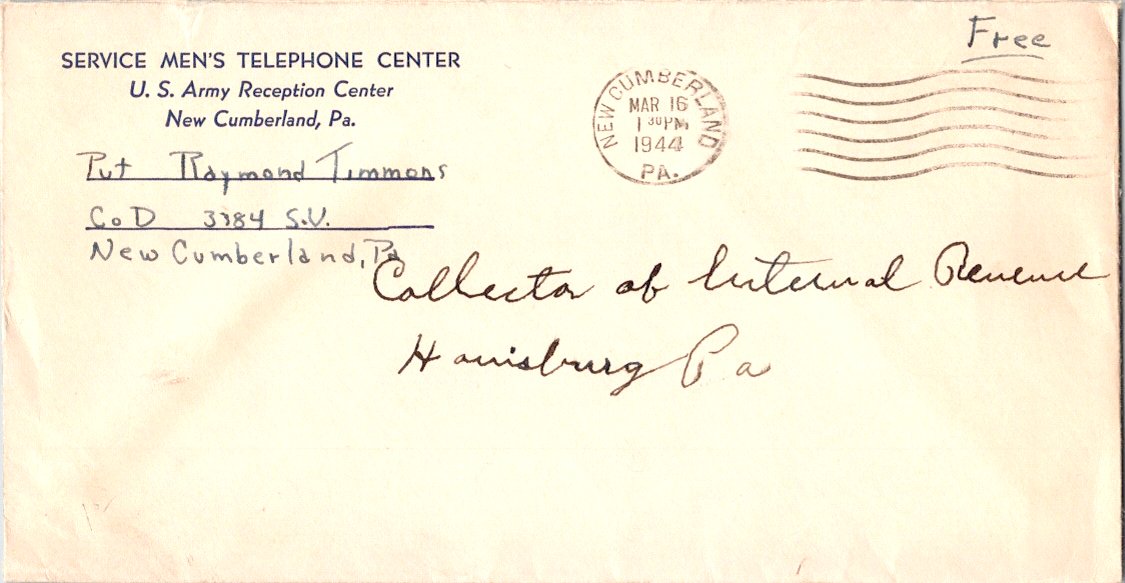 Free
SERVICE MEN'S TELEPHONE CENTER
U. S. Army Reception Center
New Cumberland, Pa.
NEW CUMBERLAND
MAR 16
1 30 PM
1944
PA.
Pvt Raymond Timmons
Co D 3384 S.U.
New Cumberland, Pa
Collector of Internal Revenue
Harrisburg Pa